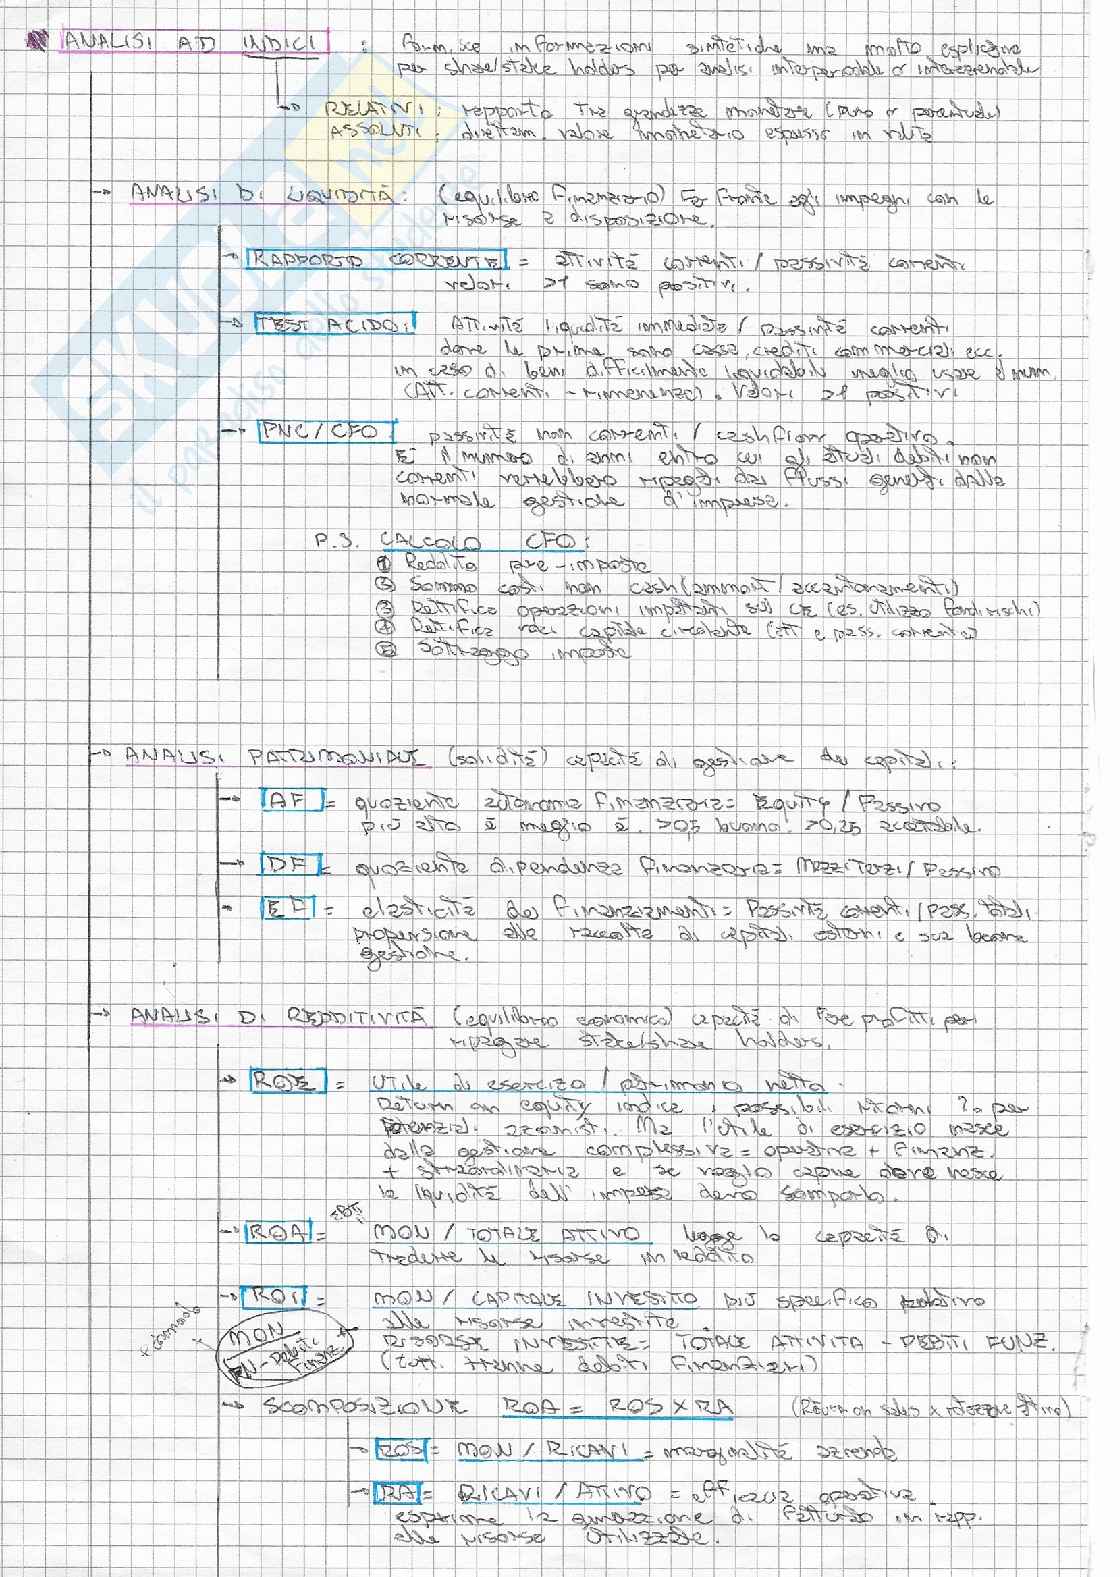 ANALISI AD INDICI : fornisce informazioni sintetiche ma molto esplicative
per share/stake holders per analisi interperiodale o interaziendale
→ RELATIVI: rapporto tra grandezze monetarie (puro o percentuale)
ASSOLUTI: direttam. valore monetario espresso in valuta
→ ANALISI DI LIQUIDITÀ: (equilibrio finanziario) Far fronte agli impegni con le
risorse a disposizione.
→ RAPPORTO CORRENTE = attività correnti / passività correnti
valori >1 sono positivi.
→ TEST ACIDO: Attività liquidità immediate / passività correnti
dove le prime sono cassa, crediti commerciali ecc.
in caso di beni difficilmente liquidabili meglio usare al num.
(Att. correnti - rimanenze). Valori >1 positivi
→ PNC/CFO: passività non correnti / cashflow operativo.
È il numero di anni entro cui gli attuali debiti non
correnti verrebbero ripagati dai flussi generati dalla
normale gestione d'impresa.
P.S. CALCOLO CFO:
① Reddito pre-imposte
② Sommo costi non cash (ammort/accantonamenti)
③ Rettifico operazioni impattanti sul (es. utilizzo fondi rischi)
④ Rettifica voci capitale circolante (att e pass. corrente)
⑤ Sottraggo imposte
→ ANALISI PATRIMONIALE (solidità) capacità di gestione dei capitali:
→ AF = quoziente autonomia finanziaria = Equity / Passivo
più alto è meglio è. >0,5 buono. >0,25 accettabile.
→ DF = quoziente dipendenza finanziaria = Mezzi Terzi / Passivo
→ EF = elasticità dei finanziamenti = Passività correnti / Pass. totali
propensione alla raccolta di capitali esterni e sua buona
gestione.
→ ANALISI DI REDDITIVITÀ (equilibrio economico) capacità di fare profitti per
ripagare stake/share holders.
→ ROE = Utile di esercizio / patrimonio netto
Return on equity indica i possibili ritorni % per
potenziali azionisti. Ma l'utile di esercizio nasce
dalla gestione complessiva = operativa + finanz.
+ straordinaria e se voglio capire dove nasce
la liquidità dell'impresa devo scomporlo.
→ ROA = MON / TOTALE ATTIVO la capacità di
tradurre le risorse in reddito
→ ROI = MON / CAPITALE INVESTITO più specifico relativo
alle risorse investite.
RISORSE INVESTITE = TOTALE ATTIVITÀ - DEBITI FUNZ.
(tutti tranne debiti finanziari)
MON
PN - Debiti Finanz.
→ SCOMPOSIZIONE ROA = ROS X RA (Return on sales x rotazione attivo)
→ ROS = MON / RICAVI = marginalità azienda
→ RA = RICAVI / ATTIVO = efficacia operativa
esprime la generazione di fatturato in rapp.
alle risorse utilizzate.
SKUOLA.net
il paradiso dello studente